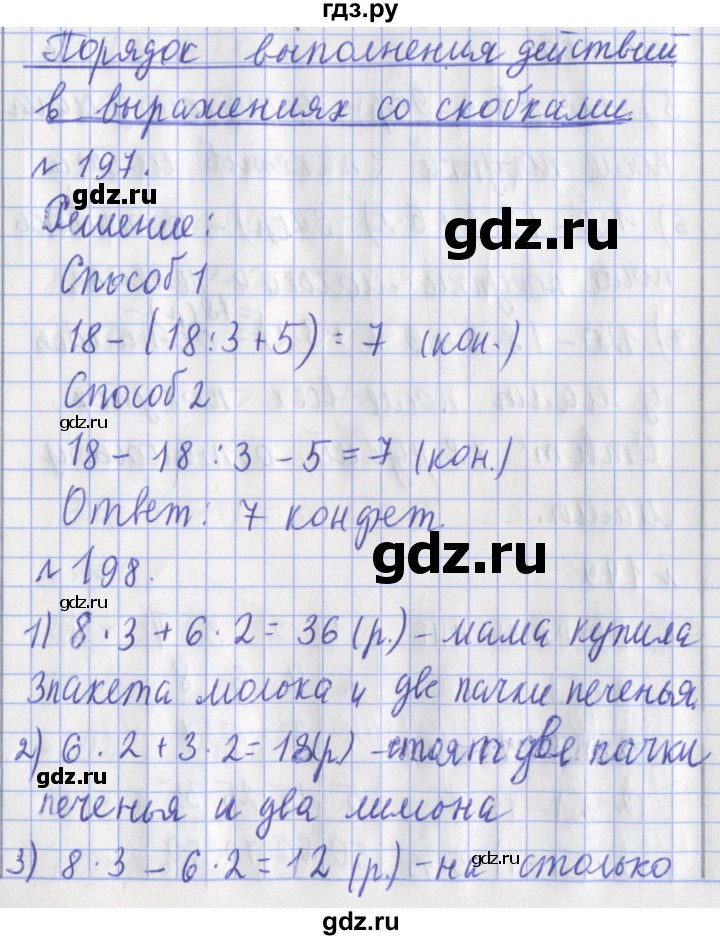 гдз.ру
Порядок выполнения действий
в выражениях со скобками
№ 197.
Решение:
gdz.ru
gdz.ru
Способ 1
18 - (18:3+5) = 7 (кон.)
Способ 2
gdz.ru
18 - 18 : 3 - 5 = 7 (кон.)
Ответ: 7 конфет
gdz.ru
№ 198.
gdz.ru
1) 8 · 3 + 6 · 2 = 36 (р.) - мама купила
3 пакета молока и две пачки печенья.
2) 6 · 2 + 3 · 2 = 18 (р) - стоят две пачки
gdz.ru
печенья и два лимона
3) 8 · 3 - 6 · 2 = 12 (р.) - на столько
gdz.ru
gdz.ru
гдз.ру